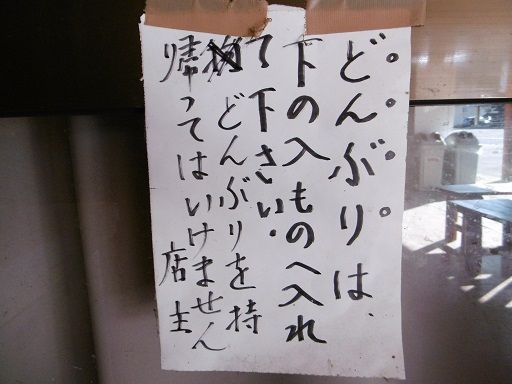 どんぶりは、
下の入ものへ入れ
て下さい。
どんぶりを持
帰ってはいけません
店主